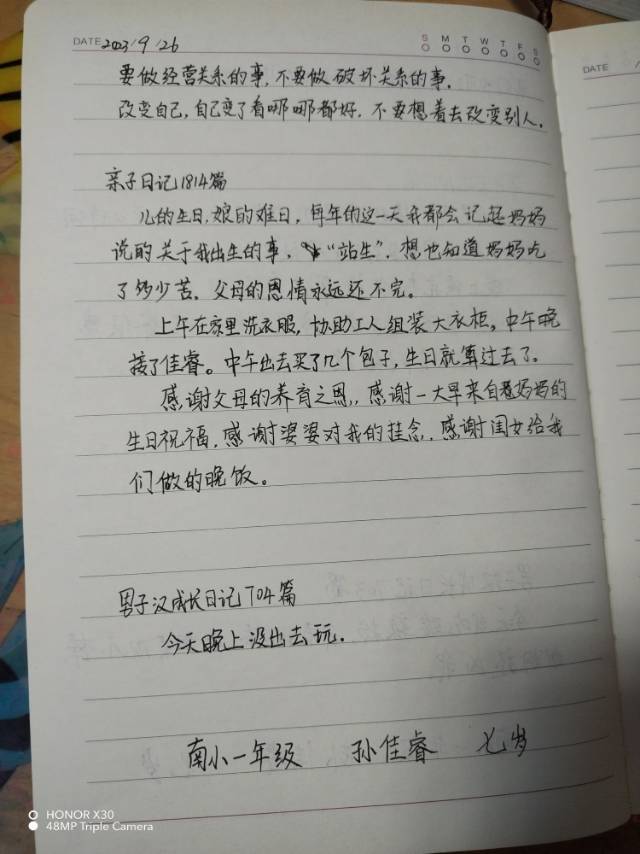 DATE 2023/9/26
S M T W T F S
要做经营关系的事,不要做破坏关系的事.
改变自己,自己变了看哪哪都好.不要想着去改变别人.
DATE
亲子日记1814篇
儿的生日,娘的难日,每年的这一天我都会记起妈妈
说的关于我出生的事,“站生”.想也知道妈妈吃
了多少苦.父母的恩情永远还不完.
上午在家里洗衣服,协助工人组装大衣柜.中午晚
接了佳睿.中午出去买了几个包子,生日就算过去了.
感谢父母的养育之恩,感谢一大早来自婆妈妈的
生日祝福,感谢婆婆对我的挂念.感谢闺女给我
们做的晚饭。
男子汉成长日记704篇
今天晚上没出去玩.
南小一年级 孙佳睿 七岁
HONOR X30
48MP Triple Camera